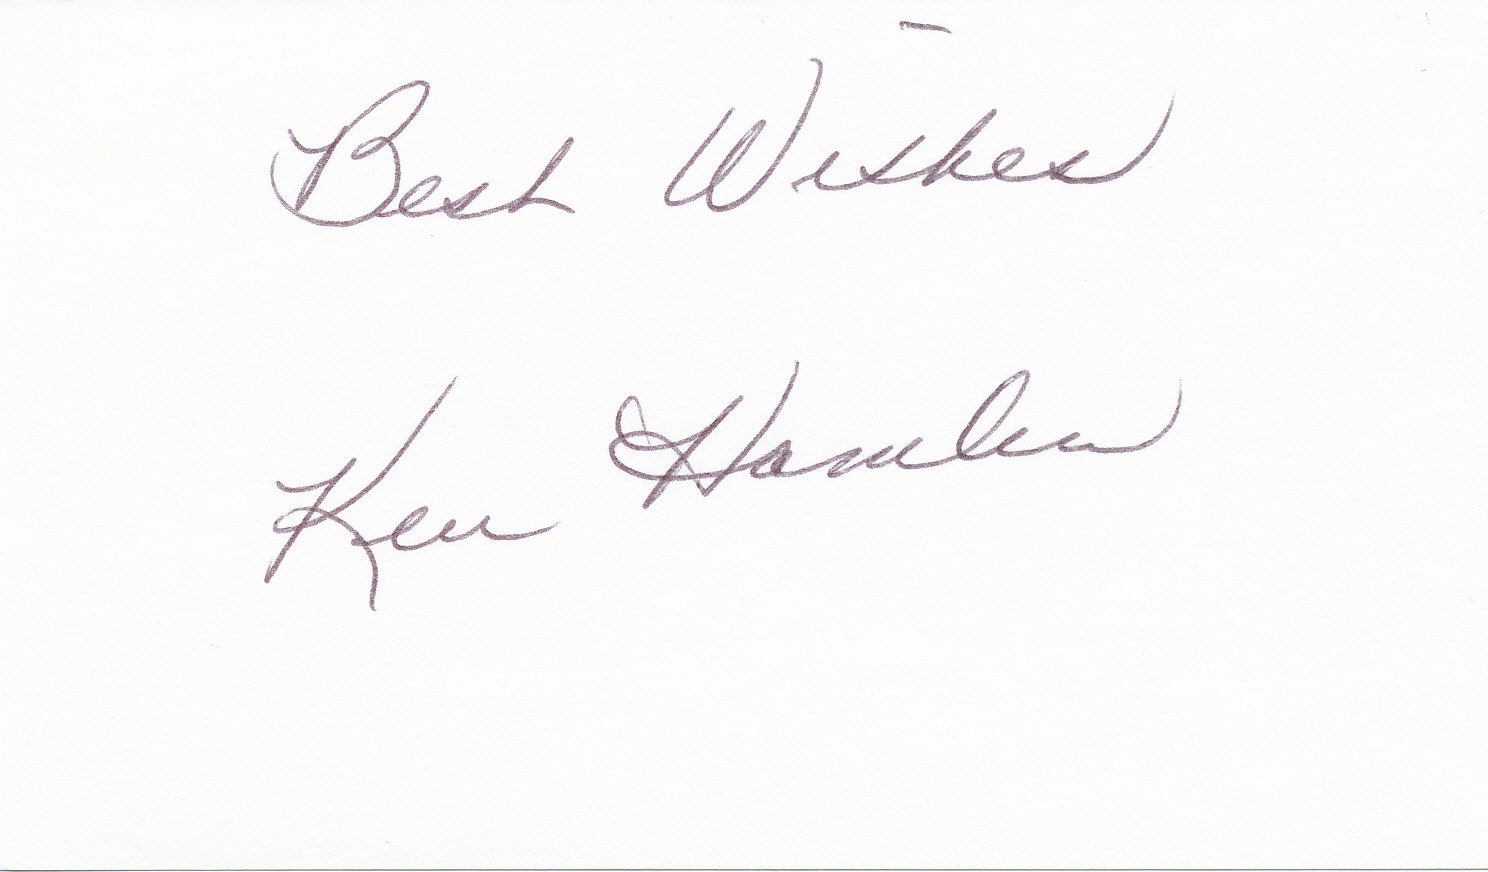 Best Wishes
Ken Hamlin